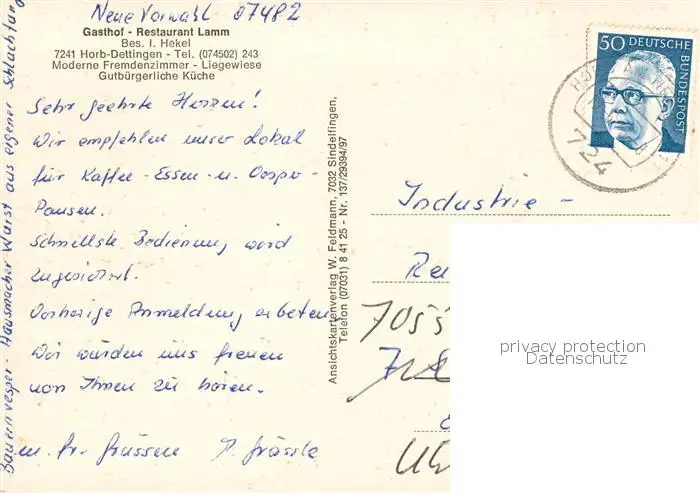 Neue Vorwahl 07482
Gasthof - Restaurant Lamm
Bes. I. Hekel
7241 Horb-Dettingen - Tel. (074502) 243
Moderne Fremdenzimmer - Liegewiese
Gutbürgerliche Küche
Sehr geehrte Herren!
Wir empfehlen unser Lokal
für Kaffee-Essen- u. Vesper-
Pausen.
Schnellste Bedienung wird
zugesichert.
Vorherige Anmeldung erbeten,
Wir würden uns freuen
von Ihnen zu hören.
m. fr. Grüssen
Bauernvesper - Hausmacher Wurst aus eigener Schlachtung
Ansichtskartenverlag W. Feldmann, 7032 Sindelfingen,
Telefon (07031) 8 41 25 - Nr. 137/29394/97
50 DEUTSCHE
BUNDESPOST
724
Industrie-
Re
7055
privacy protection
Datenschutz